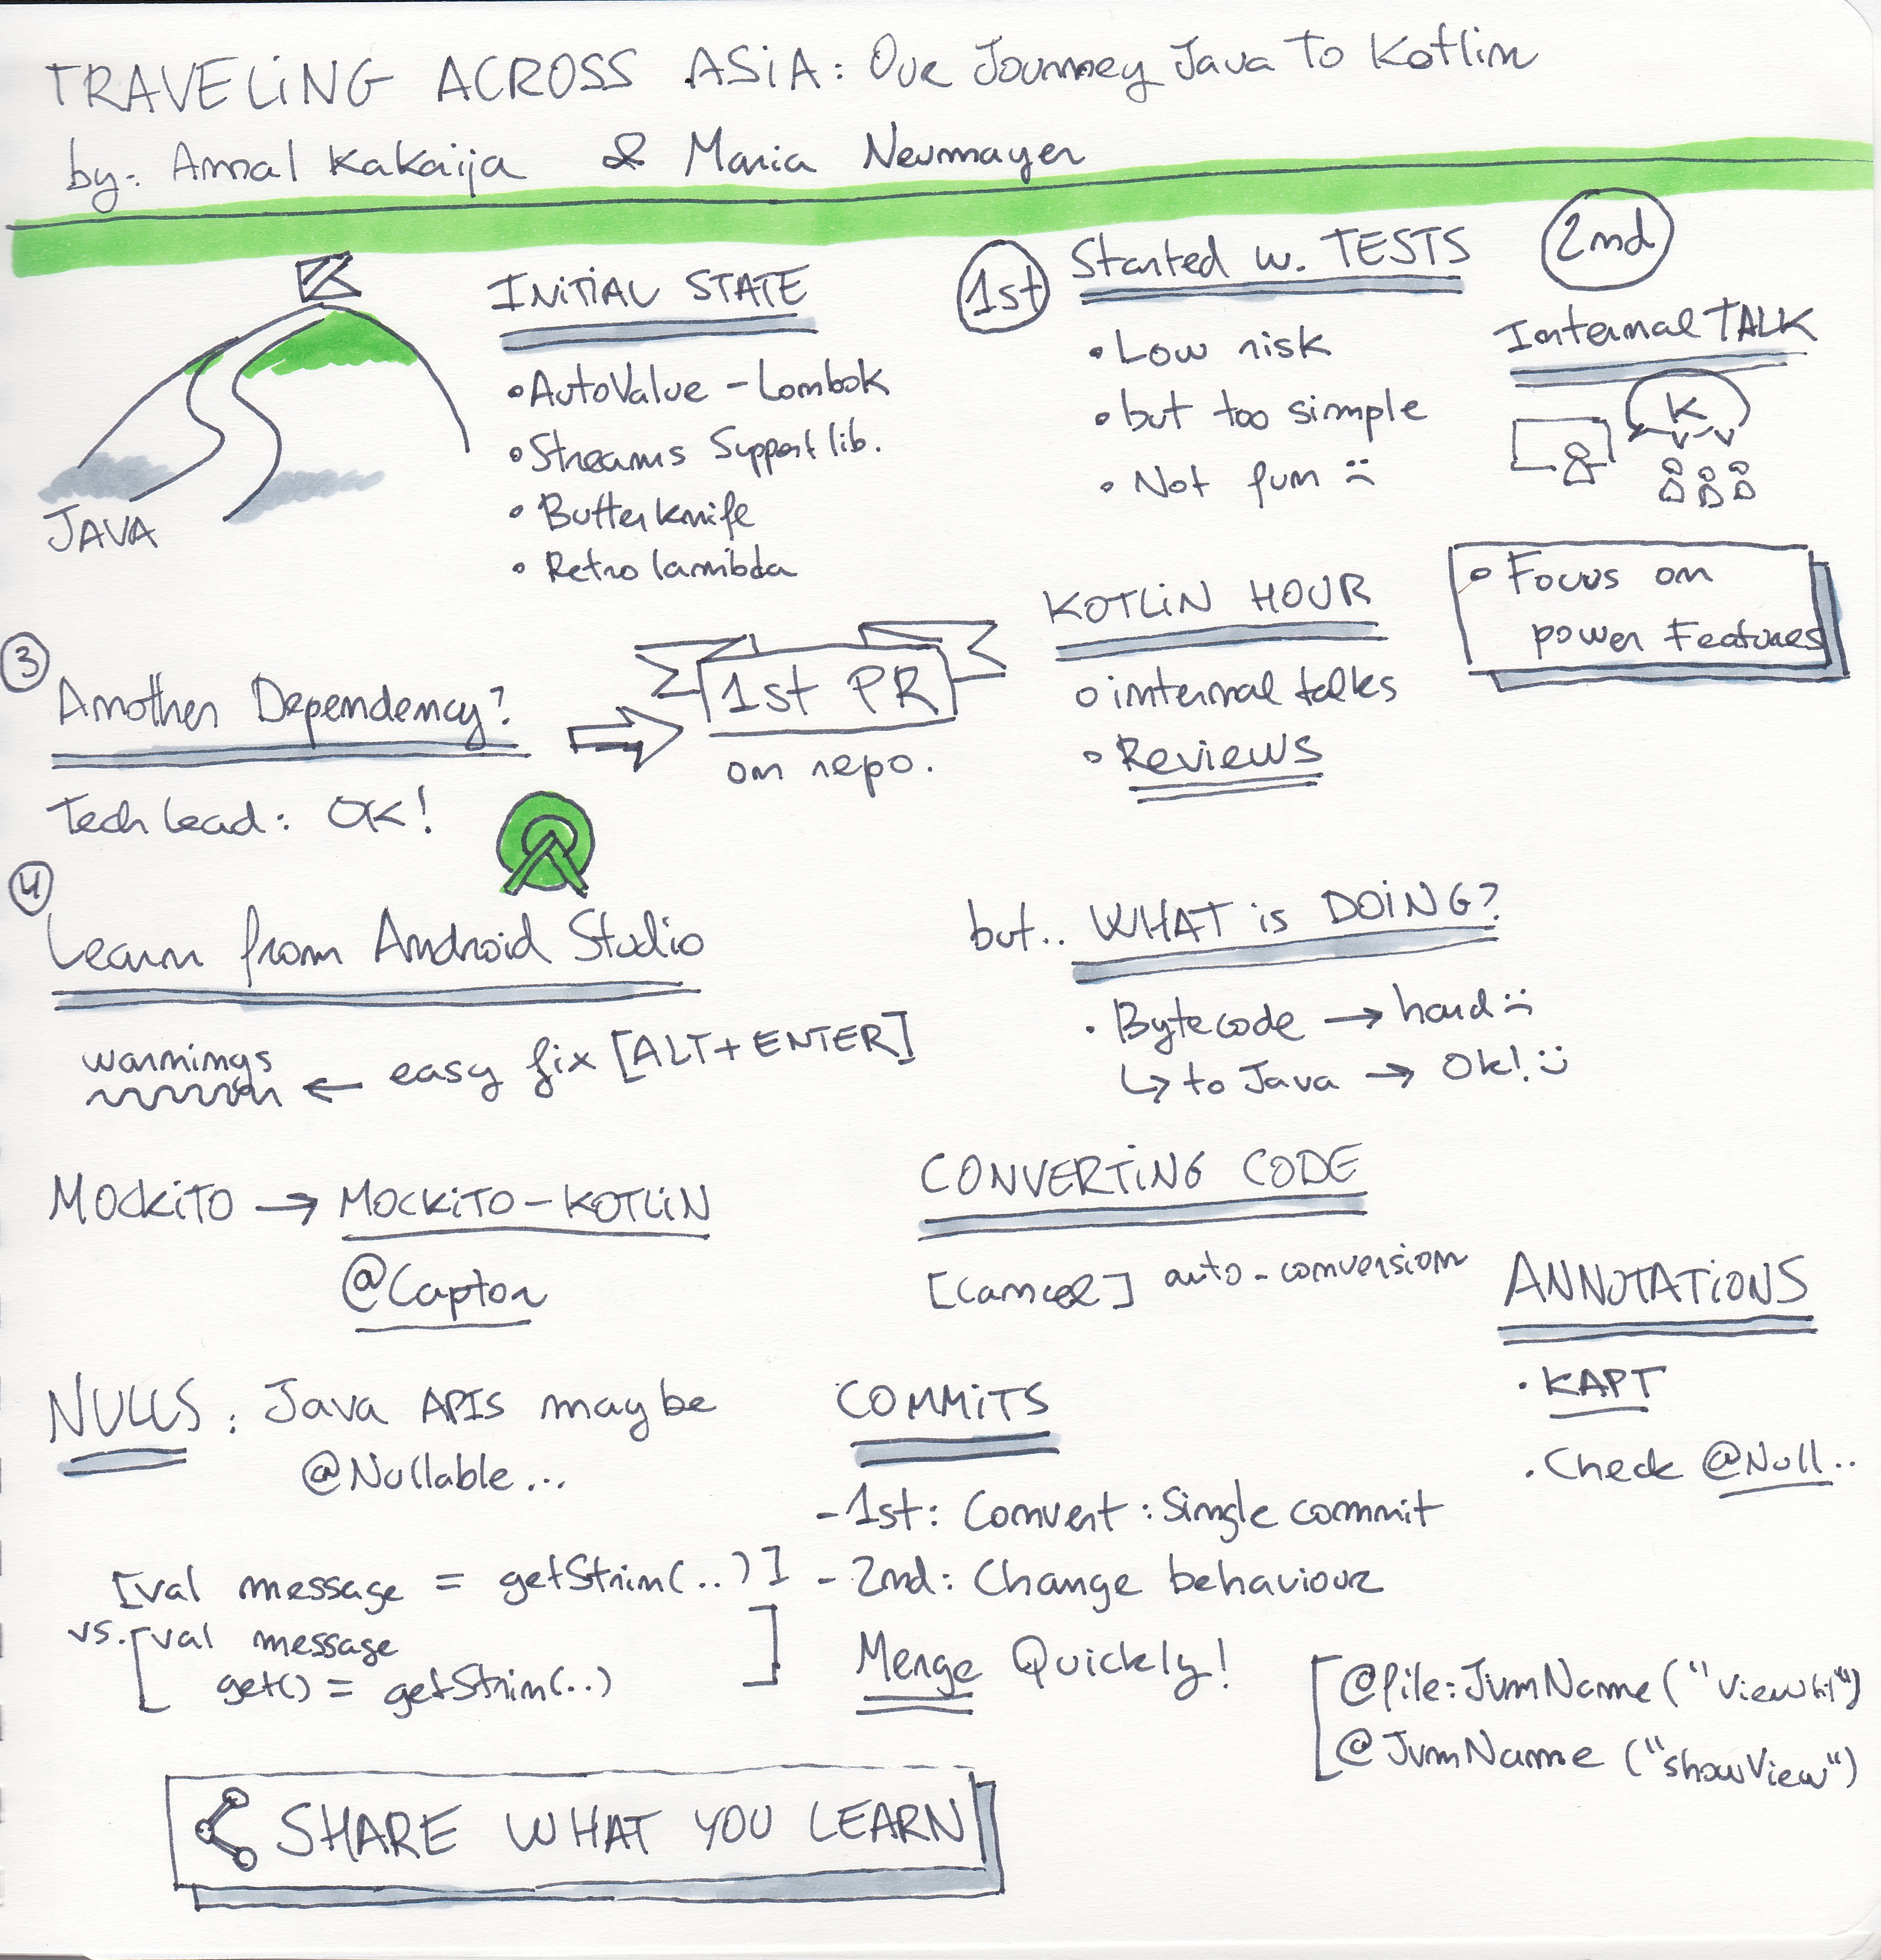 TRAVELiNG ACROSS ASiA: Our Journey Java To Kotlin
by: Amal Kakaija & Maria Neumayer
K
JAVA
INiTiAL STATE
• AutoValue - Lombok
• Streams Support lib.
• Butterknife
• Retro lambda
1st
Started w. TESTS
• Low risk
• but too simple
• Not fun :(
2nd
Internal TALK
K
• Focus on
power Features
3
Another Dependency?
Tech lead: OK!
1st PR
on repo.
KOTLiN HOUR
• internal talks
• Reviews
4
Learn from Android Studio
warnings ← easy fix [ALT + ENTER]
but.. WHAT is DOiNG?
• Bytecode → hard :(
↳ to Java → Ok! :)
MOCKiTO → MOCKiTO-KOTLiN
@Captor
CONVERTiNG CODE
[Cancel] auto-conversion
ANNOTATiONS
• KAPT
• Check @Null..
NULLS: Java APIS may be
@Nullable...
COMMiTS
- 1st: Convert: Single commit
- 2nd: Change behaviour
Merge Quickly!
[val message = getStrin(..)]
vs. [val message
get() = getStrin(..)]
[@file:JvmName("ViewUtil")
@JvmName ("showView")
SHARE WHAT YOU LEARN